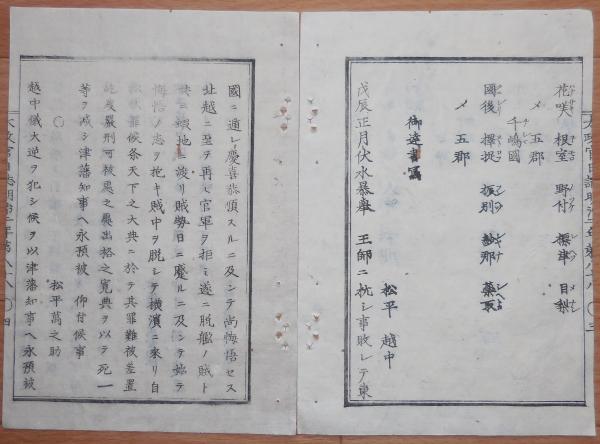 花咲 根室 野付 標津 目梨
〆 五郡
千嶋國
國後 擇捉 振別 紗那 蘂取
〆 五郡
御達書寫
松平 越中
戊辰正月伏水暴擧 王師ニ抗シ事敗レテ東
國ニ遁レ慶喜恭順スルニ及ンテ尚悔悟セス
北越ニ至テ再ヒ官軍ヲ拒ミ遂ニ脱艦ノ賊ト
共ニ蝦地ニ渡リ賊勢日ニ蹙ルニ及ンテ始テ
悔悟ノ志ヲ抱キ賊中ヲ脱シテ横濱ニ来リ自
候条天下之大典ニ於テ其罪難被差置
嚴刑可被處之處出格之寛典ヲ以テ死一
等ヲ减シ津藩知事ヘ永預被 仰付候事
〇 松平萬之助
越中儀大逆ヲ犯シ候ヲ以津藩知事ヘ永預被